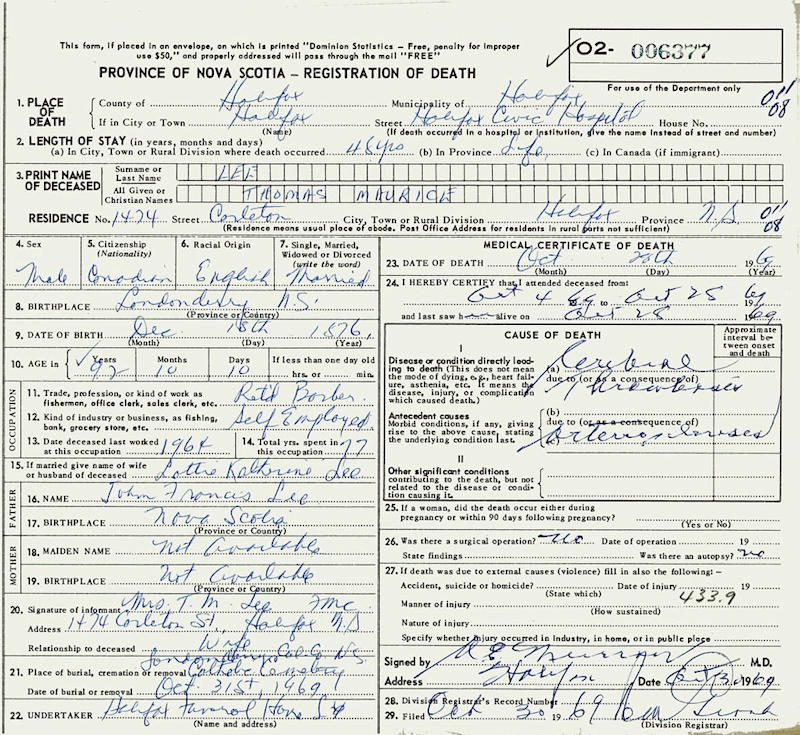 This form, if placed in an envelope, on which is printed "Dominion Statistics — Free, penalty for improper
use $50," and properly addressed will pass through the mail "FREE"
O2- 006377
PROVINCE OF NOVA SCOTIA — REGISTRATION OF DEATH
For use of the Department only
1. PLACE OF DEATH County of Halifax Municipality of Halifax
If in City or Town Halifax Street Halifax Civic Hospital House No.
(Name) (If death occurred in a hospital or institution, give the name instead of street and number)
011
08
2. LENGTH OF STAY (in years, months and days)
(a) In City, Town or Rural Division where death occurred 48 yrs (b) In Province Life (c) In Canada (if immigrant)
3. PRINT NAME OF DECEASED
Surname or Last Name LEE
All Given or Christian Names THOMAS MAURICE
RESIDENCE No. 1474 Street Carleton City, Town or Rural Division Halifax Province N.S.
(Residence means usual place of abode. Post Office Address for residents in rural parts not sufficient)
011
08
4. Sex Male
5. Citizenship (Nationality) Canadian
6. Racial Origin English
7. Single, Married, Widowed or Divorced (write the word) Married
8. BIRTHPLACE Londonderry N.S.
(Province or Country)
9. DATE OF BIRTH Dec 18th 1876
(Month) (Day) (Year)
10. AGE in Years 92 Months 10 Days 10 If less than one day old
hrs. or min.
OCCUPATION
11. Trade, profession, or kind of work as fisherman, office clerk, sales clerk, etc. Ret'd Barber
12. Kind of industry or business, as fishing, bank, grocery store, etc. Self Employed
13. Date deceased last worked at this occupation 1964
14. Total yrs. spent in this occupation 77
15. If married give name of wife or husband of deceased Lottie Katherine Lee
FATHER
16. NAME John Francis Lee
17. BIRTHPLACE Nova Scotia
(Province or Country)
MOTHER
18. MAIDEN NAME Not Available
19. BIRTHPLACE Not Available
(Province or Country)
20. Signature of informant Mrs. T. M. Lee
Address 1474 Carleton St. Halifax N.S
Relationship to deceased Wife
21. Place of burial, cremation or removal Londonderry Col. Co. N.S. Catholic Cemetery
Date of burial or removal Oct. 31st, 1969
22. UNDERTAKER Halifax Funeral Home
(Name and address)
MEDICAL CERTIFICATE OF DEATH
23. DATE OF DEATH Oct 28th 1969
(Month) (Day) (Year)
24. I HEREBY CERTIFY that I attended deceased from:
Oct 4 69 to Oct 28 69
and last saw h alive on Oct 28 1969
CAUSE OF DEATH
Approximate interval between onset and death
I
Disease or condition directly leading to death (This does not mean the mode of dying, e.g., heart failure, asthenia, etc. It means the disease, injury, or complication which caused death.)
(a) Cerebral
due to (or as a consequence of)
Thrombosis
Antecedent causes
Morbid conditions, if any, giving rise to the above cause, stating the underlying condition last.
(b)
due to (or as a consequence of)
(c)
II
Other significant conditions
contributing to the death, but not related to the disease or condition causing it.
25. If a woman, did the death occur either during
pregnancy or within 90 days following pregnancy?
(Yes or No)
26. Was there a surgical operation? no Date of operation 19
State findings Was there an autopsy? no
27. If death was due to external causes (violence) fill in also the following:—
Accident, suicide or homicide? Date of injury 19
(State which) 433.9
Manner of injury
(How sustained)
Nature of injury
Specify whether injury occurred in industry, in home, or in public place
Signed by M.D.
Address Halifax Date Oct 30 1969
28. Division Registrar's Record Number
29. Filed Oct 30 1969
(Division Registrar)